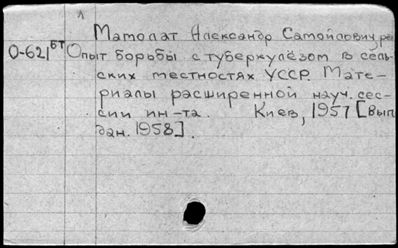 Матолат Александр Самойлович, ред
О-621 БТ Опыт борьбы с туберкулёзом в сель-
ских местностях УССР. Мате-
риалы расширенной науч. сес-
сии ин-та. Киев, 1957 [Вып.
дан. 1958].